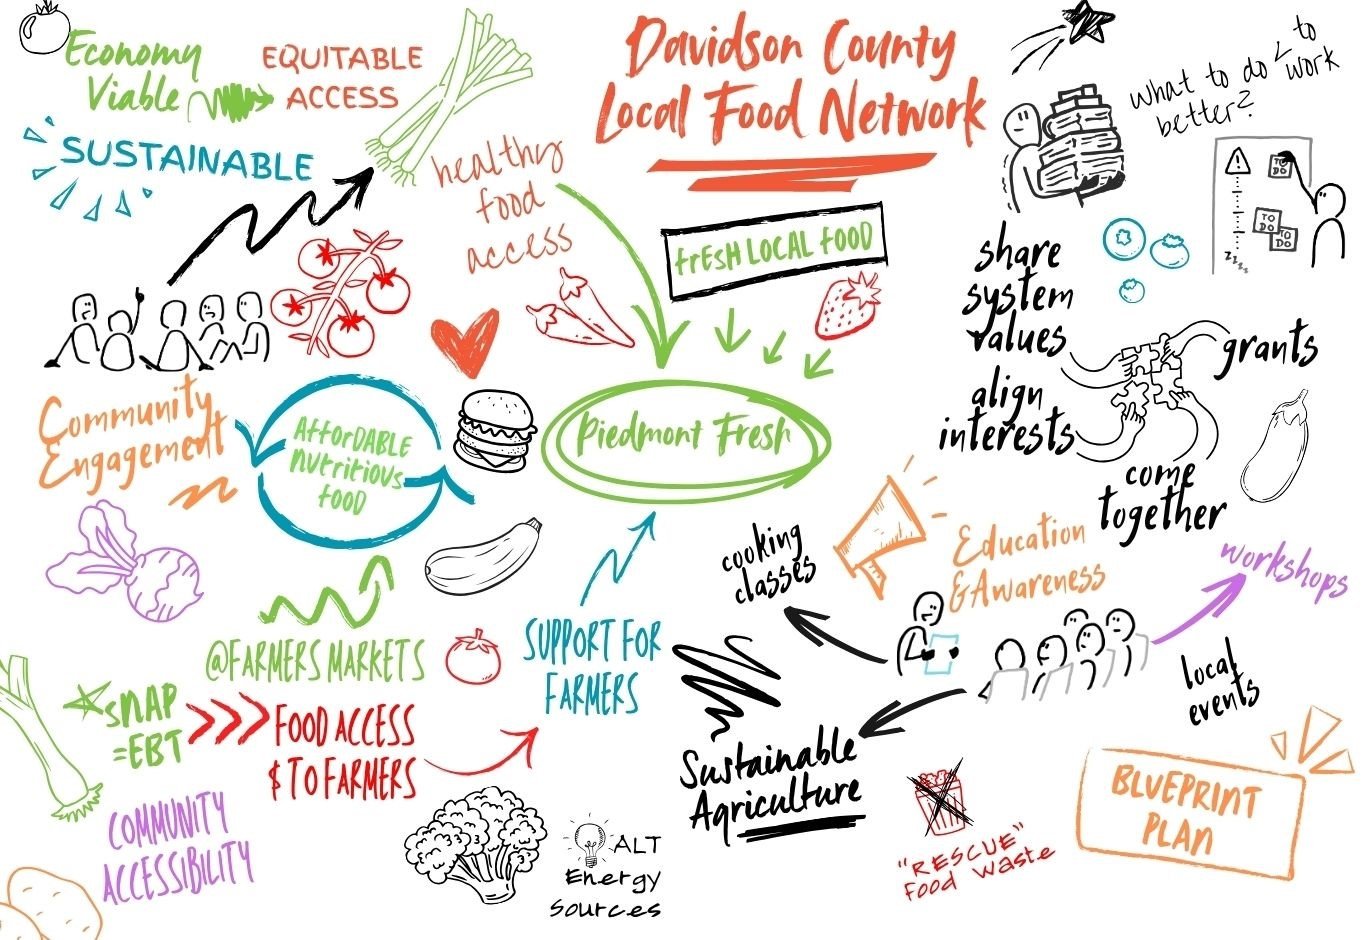 Davidson County
Local Food Network
Economy
Viable
EQUITABLE
ACCESS
SUSTAINABLE
healthy
food
access
frEsH LOCAL fOOD
What to do < to work
better?
TO
DO
TO
DO
TO
DO
zzzz
share
system
values
align
interests
grants
come
together
Community
Engagement
AfforDABLE
nutritious
fOOD
Piedmont Fresh
cooking
classes
Education
& Awareness
workshops
local
events
@FARMERS MARKETS
SUPPORT FOR
FARMERS
sNAP
=EBT
FOOD ACCESS
$ TO FARMERS
Sustainable
Agriculture
COMMUNITY
ACCESSIBILITY
ALT
Energy
sources
"RESCUE"
food waste
BLUEPRINT
PLAN